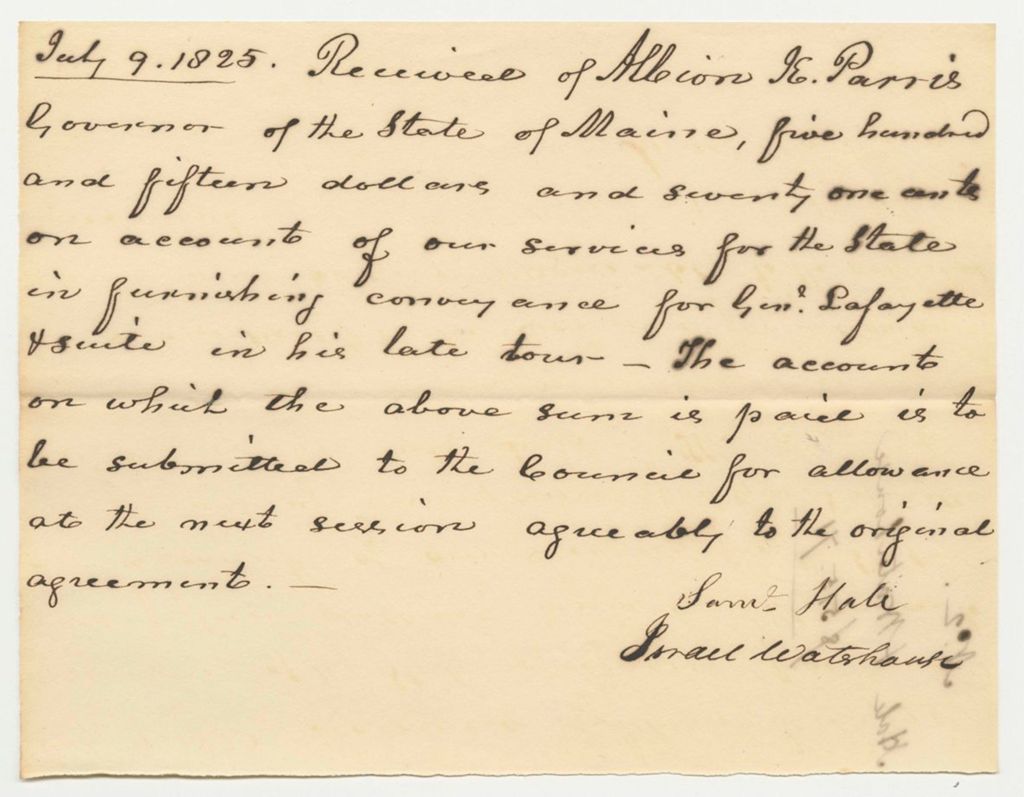 July 9. 1825. Received of Albion K. Parris
Governor of the State of Maine, five hundred
and fifteen dollars and seventy one cents
on account of our services for the State
in furnishing conveyance for Genl. Lafayette
& suite in his late tour — The account
on which the above sum is paid is to
be submitted to the Council for allowance
at the next session agreeably to the original
agreement. —
Saml Hale
Israel Waterhouse